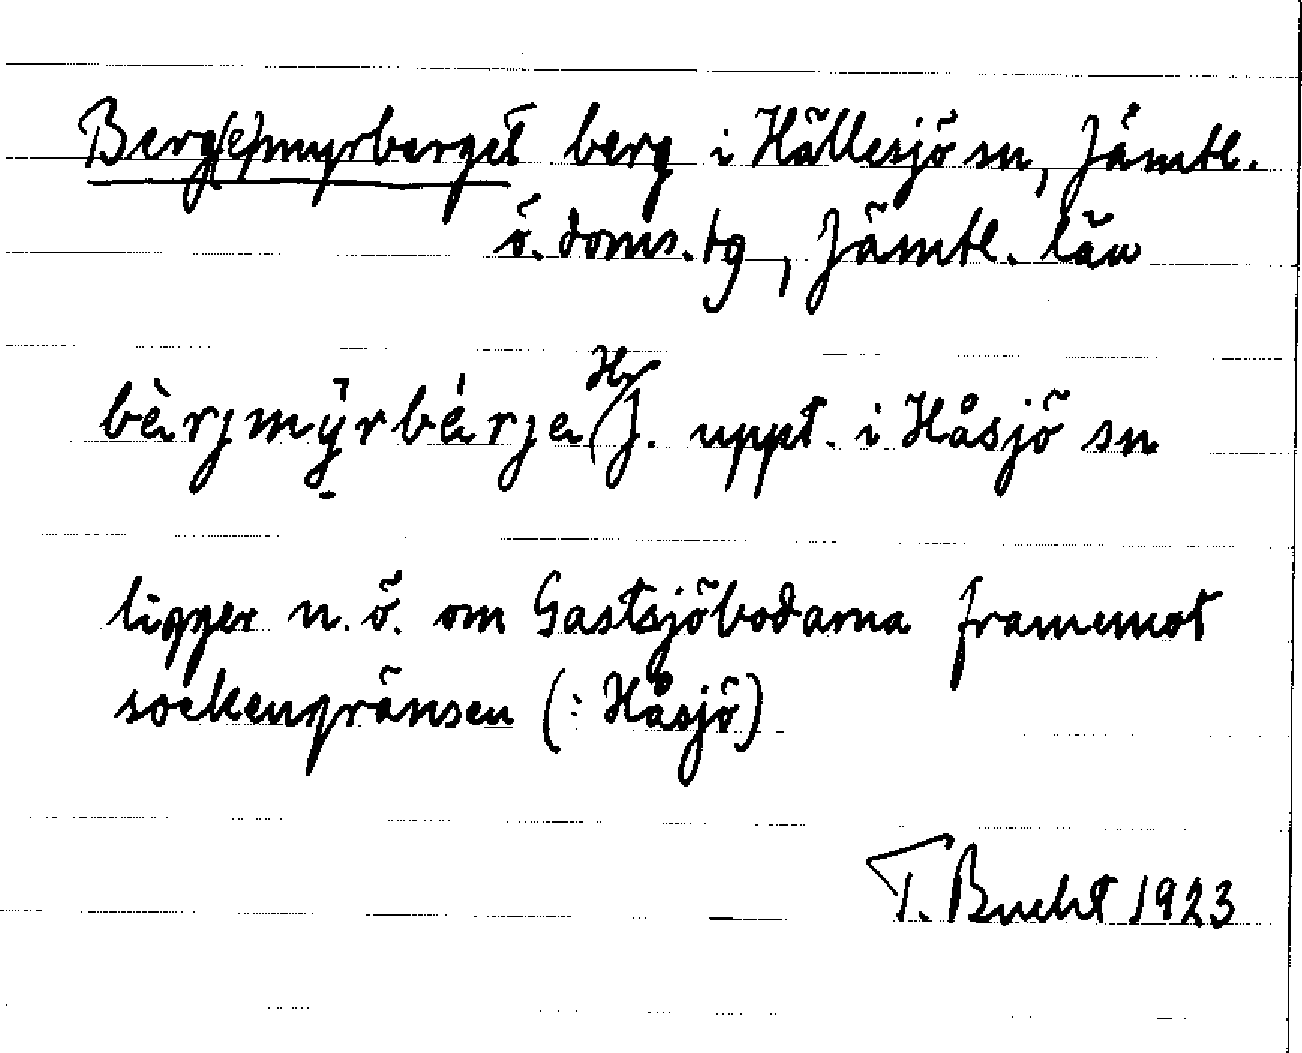 Berg(e)myrberget berg i Hällesjö sn, Jämtl.
ö. doms. tg, Jämtl. län
bèrjmỳrbérje J. uppt. i Håsjö sn
ligger n. ö. om Gastsjöbodarna framemot
sockengränsen (: Håsjö)
T. Bucht 1923